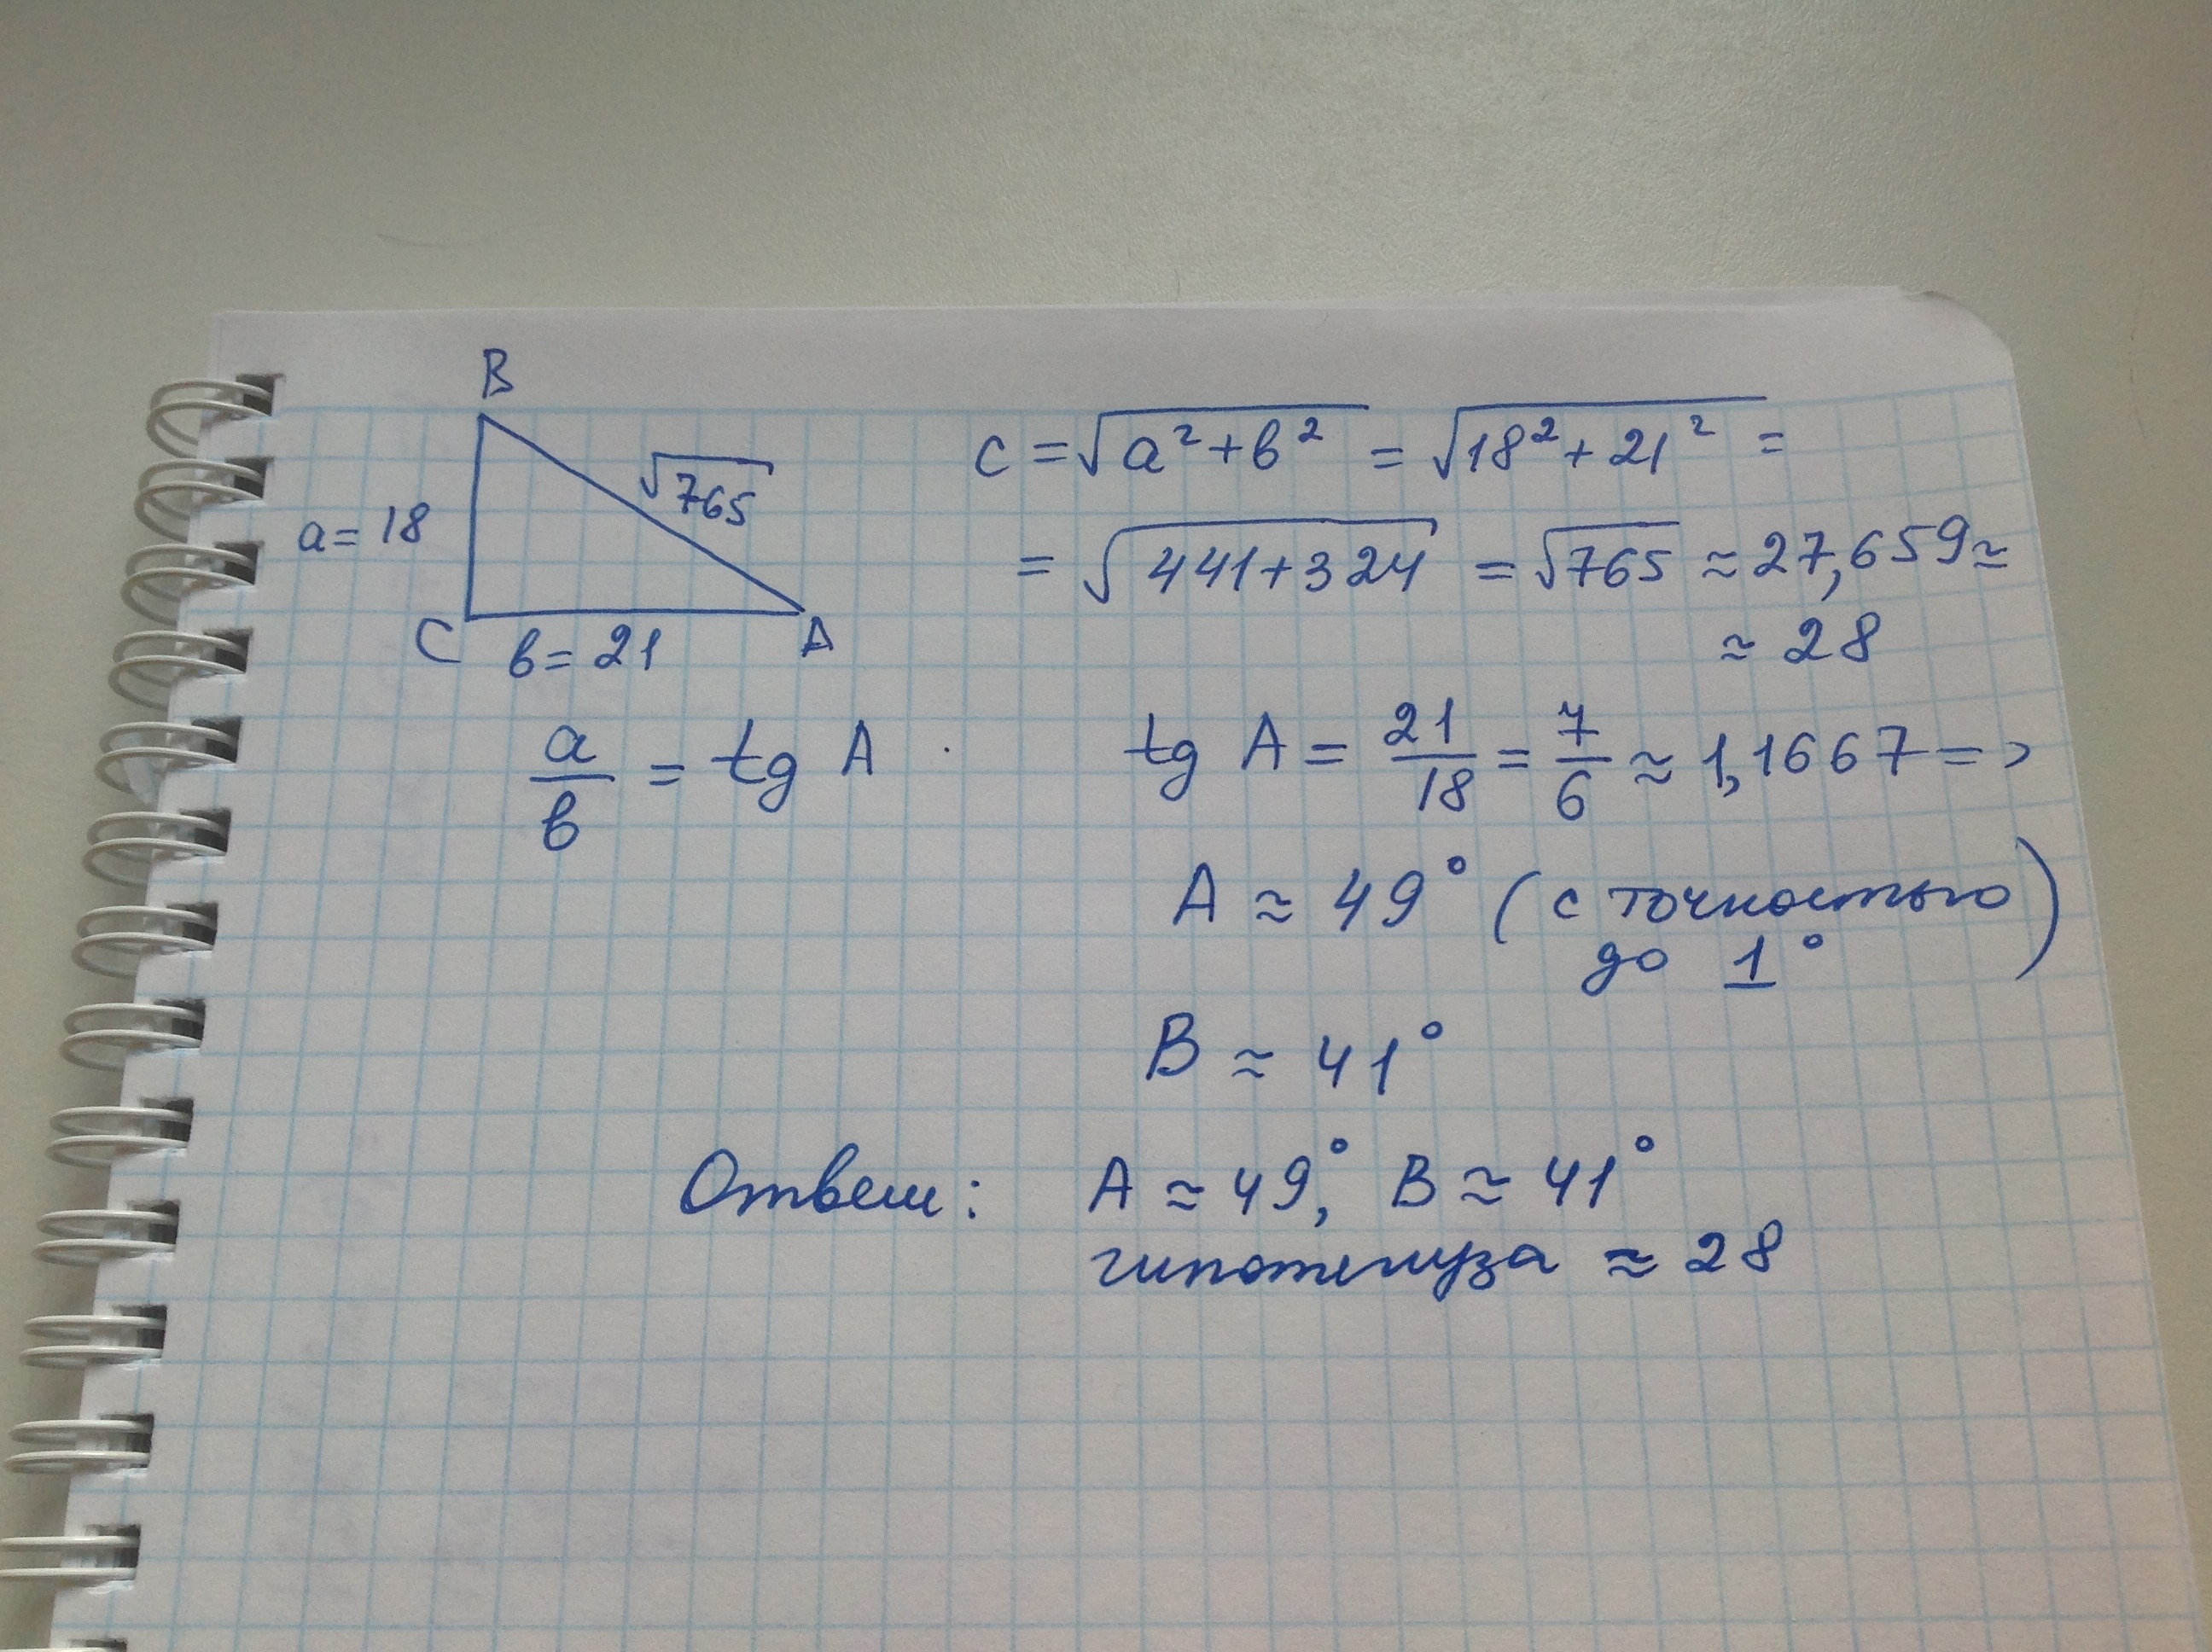 B
√765
a = 18
C
b = 21
A
c = √a² + b² = √18² + 21² =
= √441 + 324 = √765 ≈ 27,659 ≈
≈ 28
a/b = tg A
tg A = 21/18 = 7/6 ≈ 1,1667 =>
A ≈ 49° (с точностью
до 1°)
B ≈ 41°
Ответ: A ≈ 49°, B ≈ 41°
гипотенуза ≈ 28